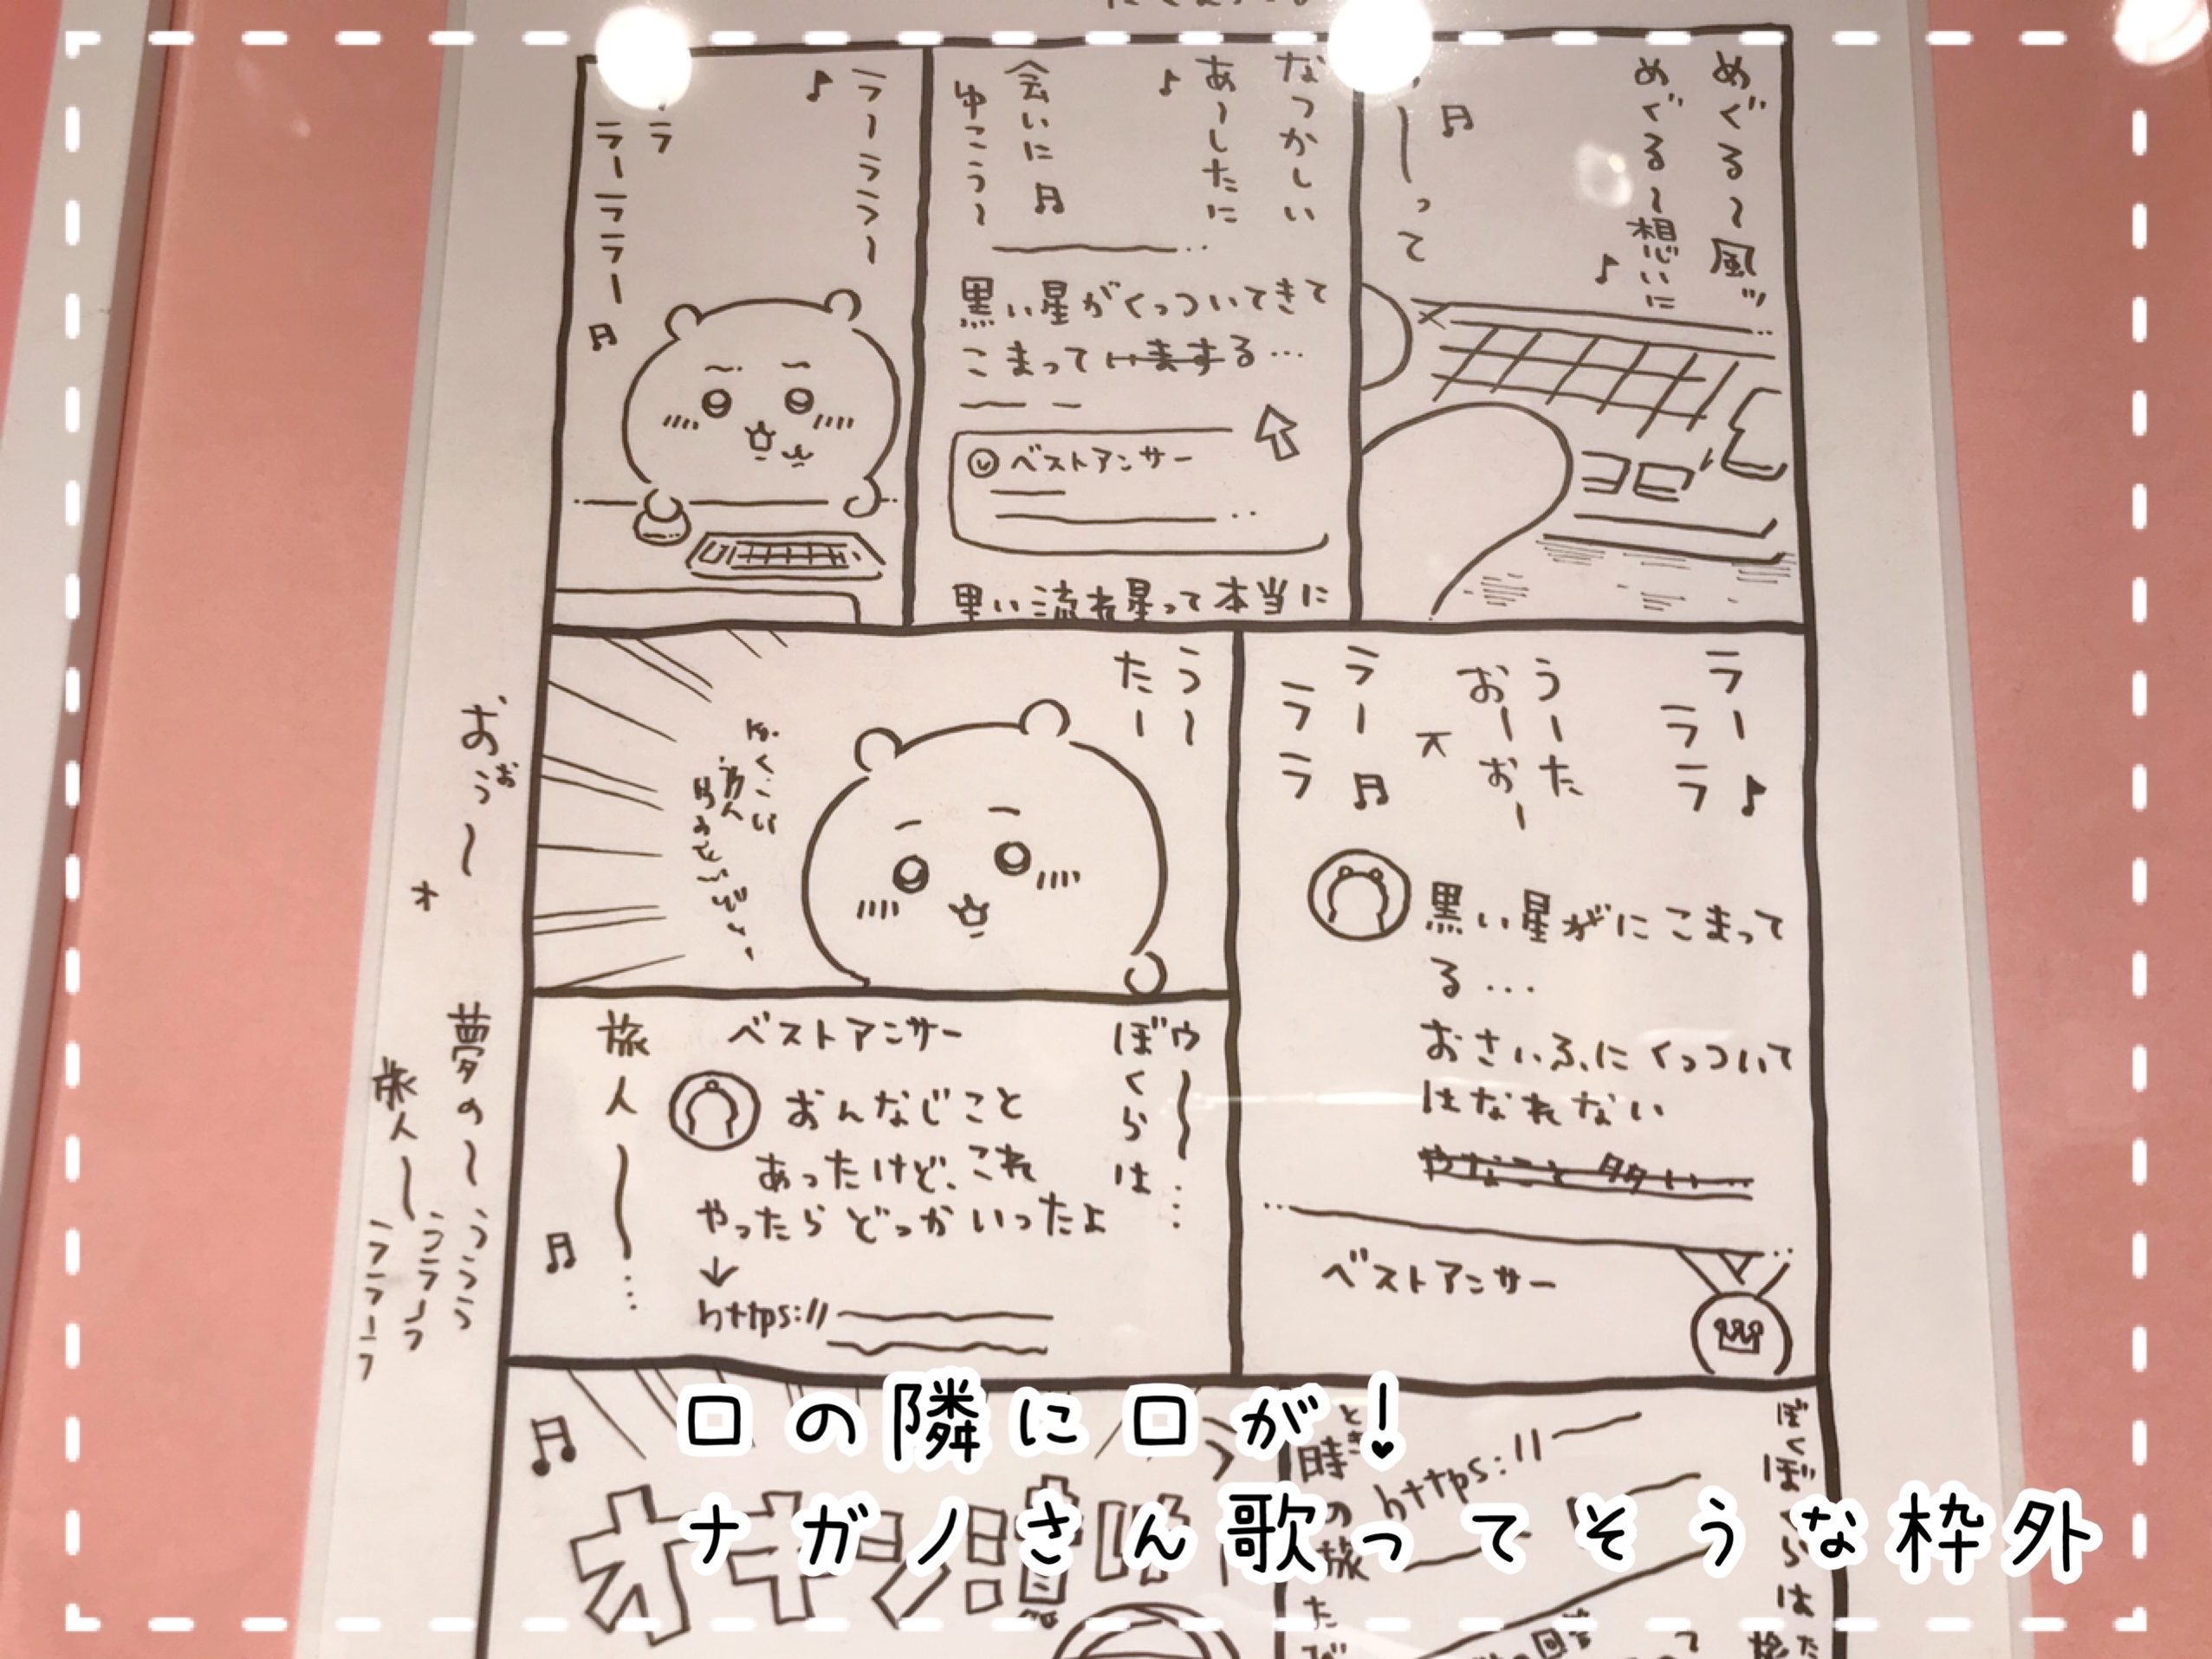 めぐる〜風ッ
めぐる〜想いに♪
ーって
なつかしい
あ〜したに♪
会いに
ゆこう〜
黒い星がくっついてきて
こまっていまする…
ベストアンサー
黒い流れ星って本当に
ラーララ〜♪
ラ
ラーララー
ラー♪
ララ
うーた
おーおー
ラー
ララ
黒い星がにこまって
る…
おさいふにくっついて
はなれない
やなこと多い…
ベストアンサー
う〜
たー
ウ〜〜…
ぼくらは
ベストアンサー
おんなじこと
あったけど、これ
やったらどっかいったよ
↓
https://
旅人〜…
おぅ〜
お
夢の〜うらら
旅人〜ララーラ
ララーラ
ぼくぼくらはた
https://
時の旅
とき
たび
オキノ道
口の隣に口が!
ナガノさん歌ってそうな枠外